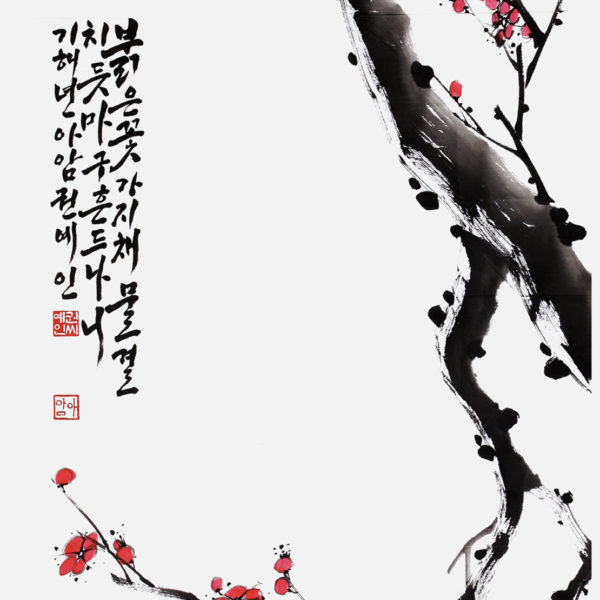 붉은꽃 가지채 물결
치듯마구흔드나니
기해년아암권예인
권씨
예인
아암